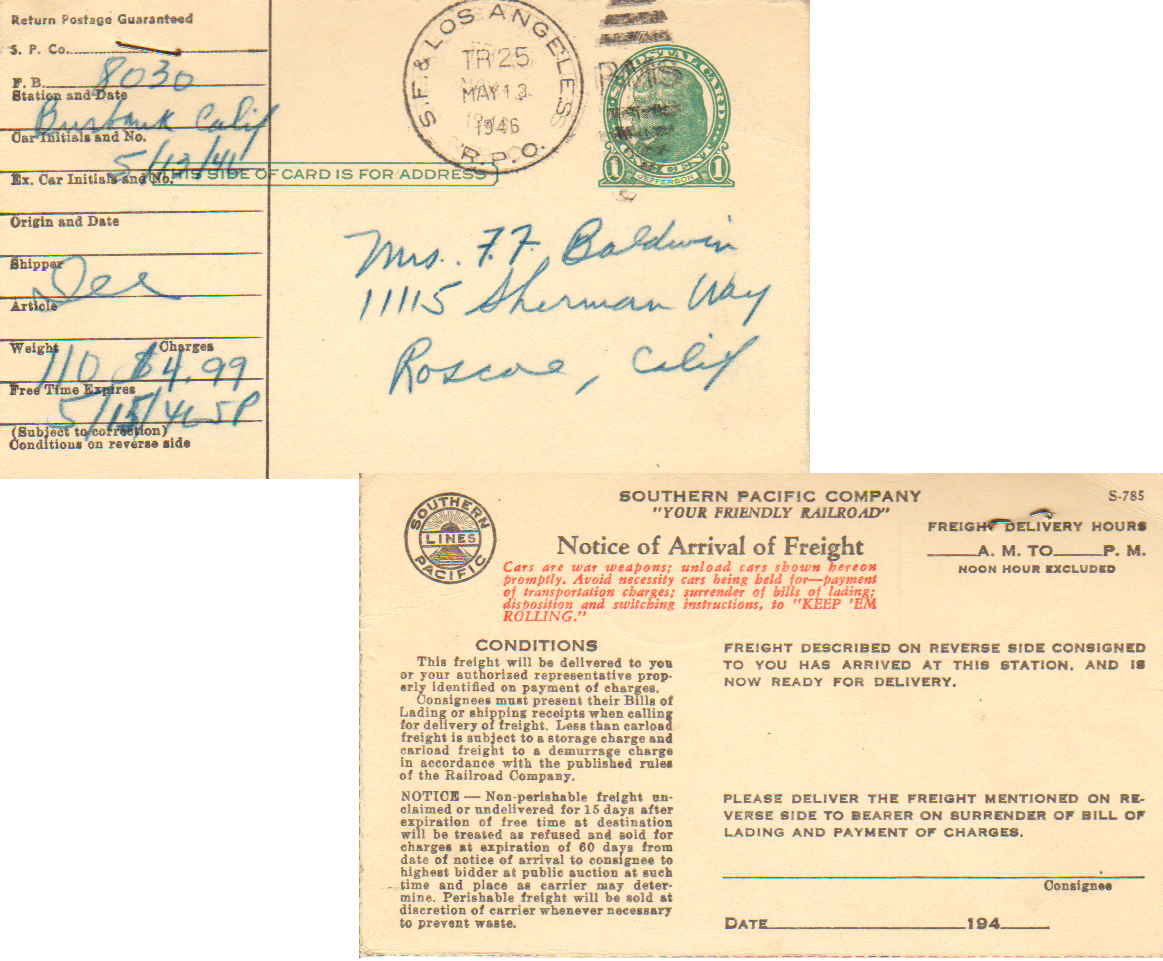 Return Postage Guaranteed
S. P. Co.
F. B. 8030
Station and Date
Burbank Calif
Car Initials and No.
5/13/46
Ex. Car Initials and No.
Origin and Date
Shipper
Article
Weight Charges
110 $4.99
Free Time Expires
5/15/46 5P
(Subject to correction)
Conditions on reverse side
S.F. & LOS ANGELES
TR 25
MAY 13
1946
R.P.O.
RMS
U.S. POSTAL CARD
1 ONE CENT 1
JEFFERSON
THIS SIDE OF CARD IS FOR ADDRESS
Mrs. F. F. Baldwin
11115 Sherman Way
Roscoe, Calif
SOUTHERN
LINES
PACIFIC
SOUTHERN PACIFIC COMPANY
"YOUR FRIENDLY RAILROAD"
Notice of Arrival of Freight
S-785
FREIGHT DELIVERY HOURS
A. M. TO P. M.
NOON HOUR EXCLUDED
Cars are war weapons; unload cars shown hereon
promptly. Avoid necessity cars being held for—payment
of transportation charges; surrender of bills of lading;
disposition and switching instructions, to "KEEP 'EM
ROLLING."
CONDITIONS
This freight will be delivered to you
or your authorized representative prop-
erly identified on payment of charges.
Consignees must present their Bills of
Lading or shipping receipts when calling
for delivery of freight. Less than carload
freight is subject to a storage charge and
carload freight to a demurrage charge
in accordance with the published rules
of the Railroad Company.
NOTICE — Non-perishable freight un-
claimed or undelivered for 15 days after
expiration of free time at destination
will be treated as refused and sold for
charges at expiration of 60 days from
date of notice of arrival to consignee to
highest bidder at public auction at such
time and place as carrier may deter-
mine. Perishable freight will be sold at
discretion of carrier whenever necessary
to prevent waste.
FREIGHT DESCRIBED ON REVERSE SIDE CONSIGNED
TO YOU HAS ARRIVED AT THIS STATION, AND IS
NOW READY FOR DELIVERY.
PLEASE DELIVER THE FREIGHT MENTIONED ON RE-
VERSE SIDE TO BEARER ON SURRENDER OF BILL OF
LADING AND PAYMENT OF CHARGES.
Consignee
DATE 194